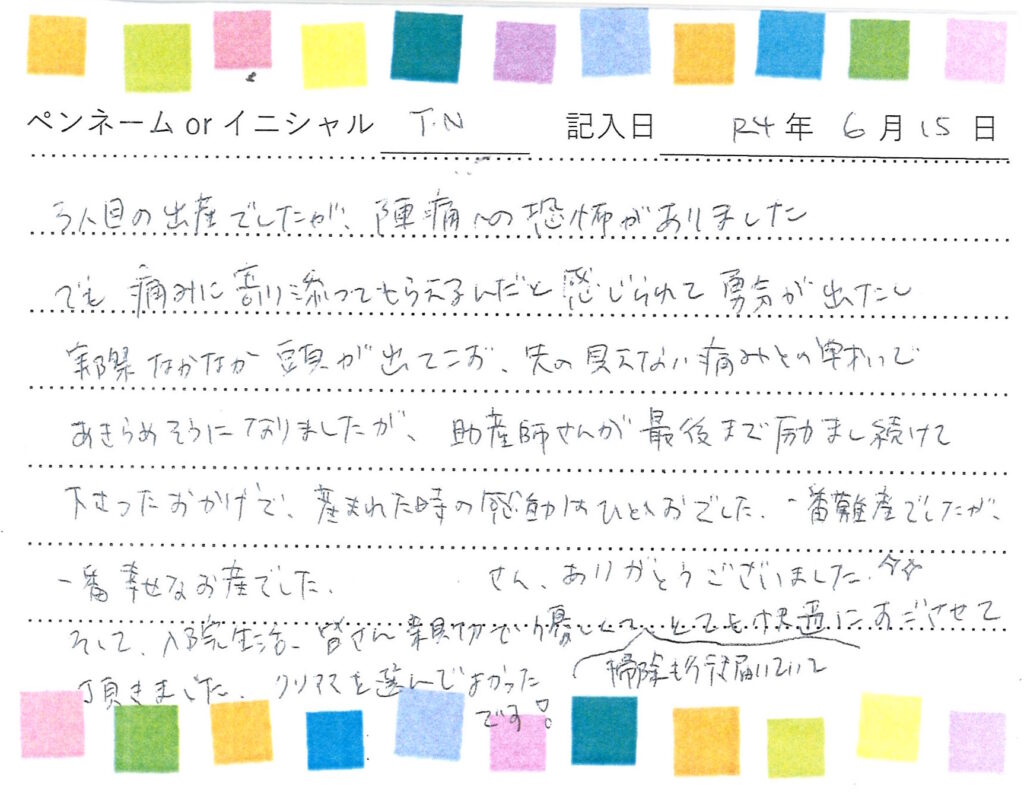 ペンネーム or イニシャル T.N 記入日 R4年 6月15日
3人目の出産でしたが、陣痛への恐怖がありました
でも 痛みに寄り添ってもらえるんだと 感じられて 勇気が出たし
実際 なかなか 頭が出てこず、先の見えない痛みとの戦いで
あきらめそうになりましたが、助産師さんが最後まで励まし続けて
下さったおかげで、産まれた時の感動はひとしおでした。一番難産でしたが、
一番幸せなお産でした。 さん、ありがとうございました。☆☆
そして、入院生活、皆さん親切で優しくて、とても快適にすごさせて
掃除も行き届いていて
頂きました。クリアスを選んでよかった
です!